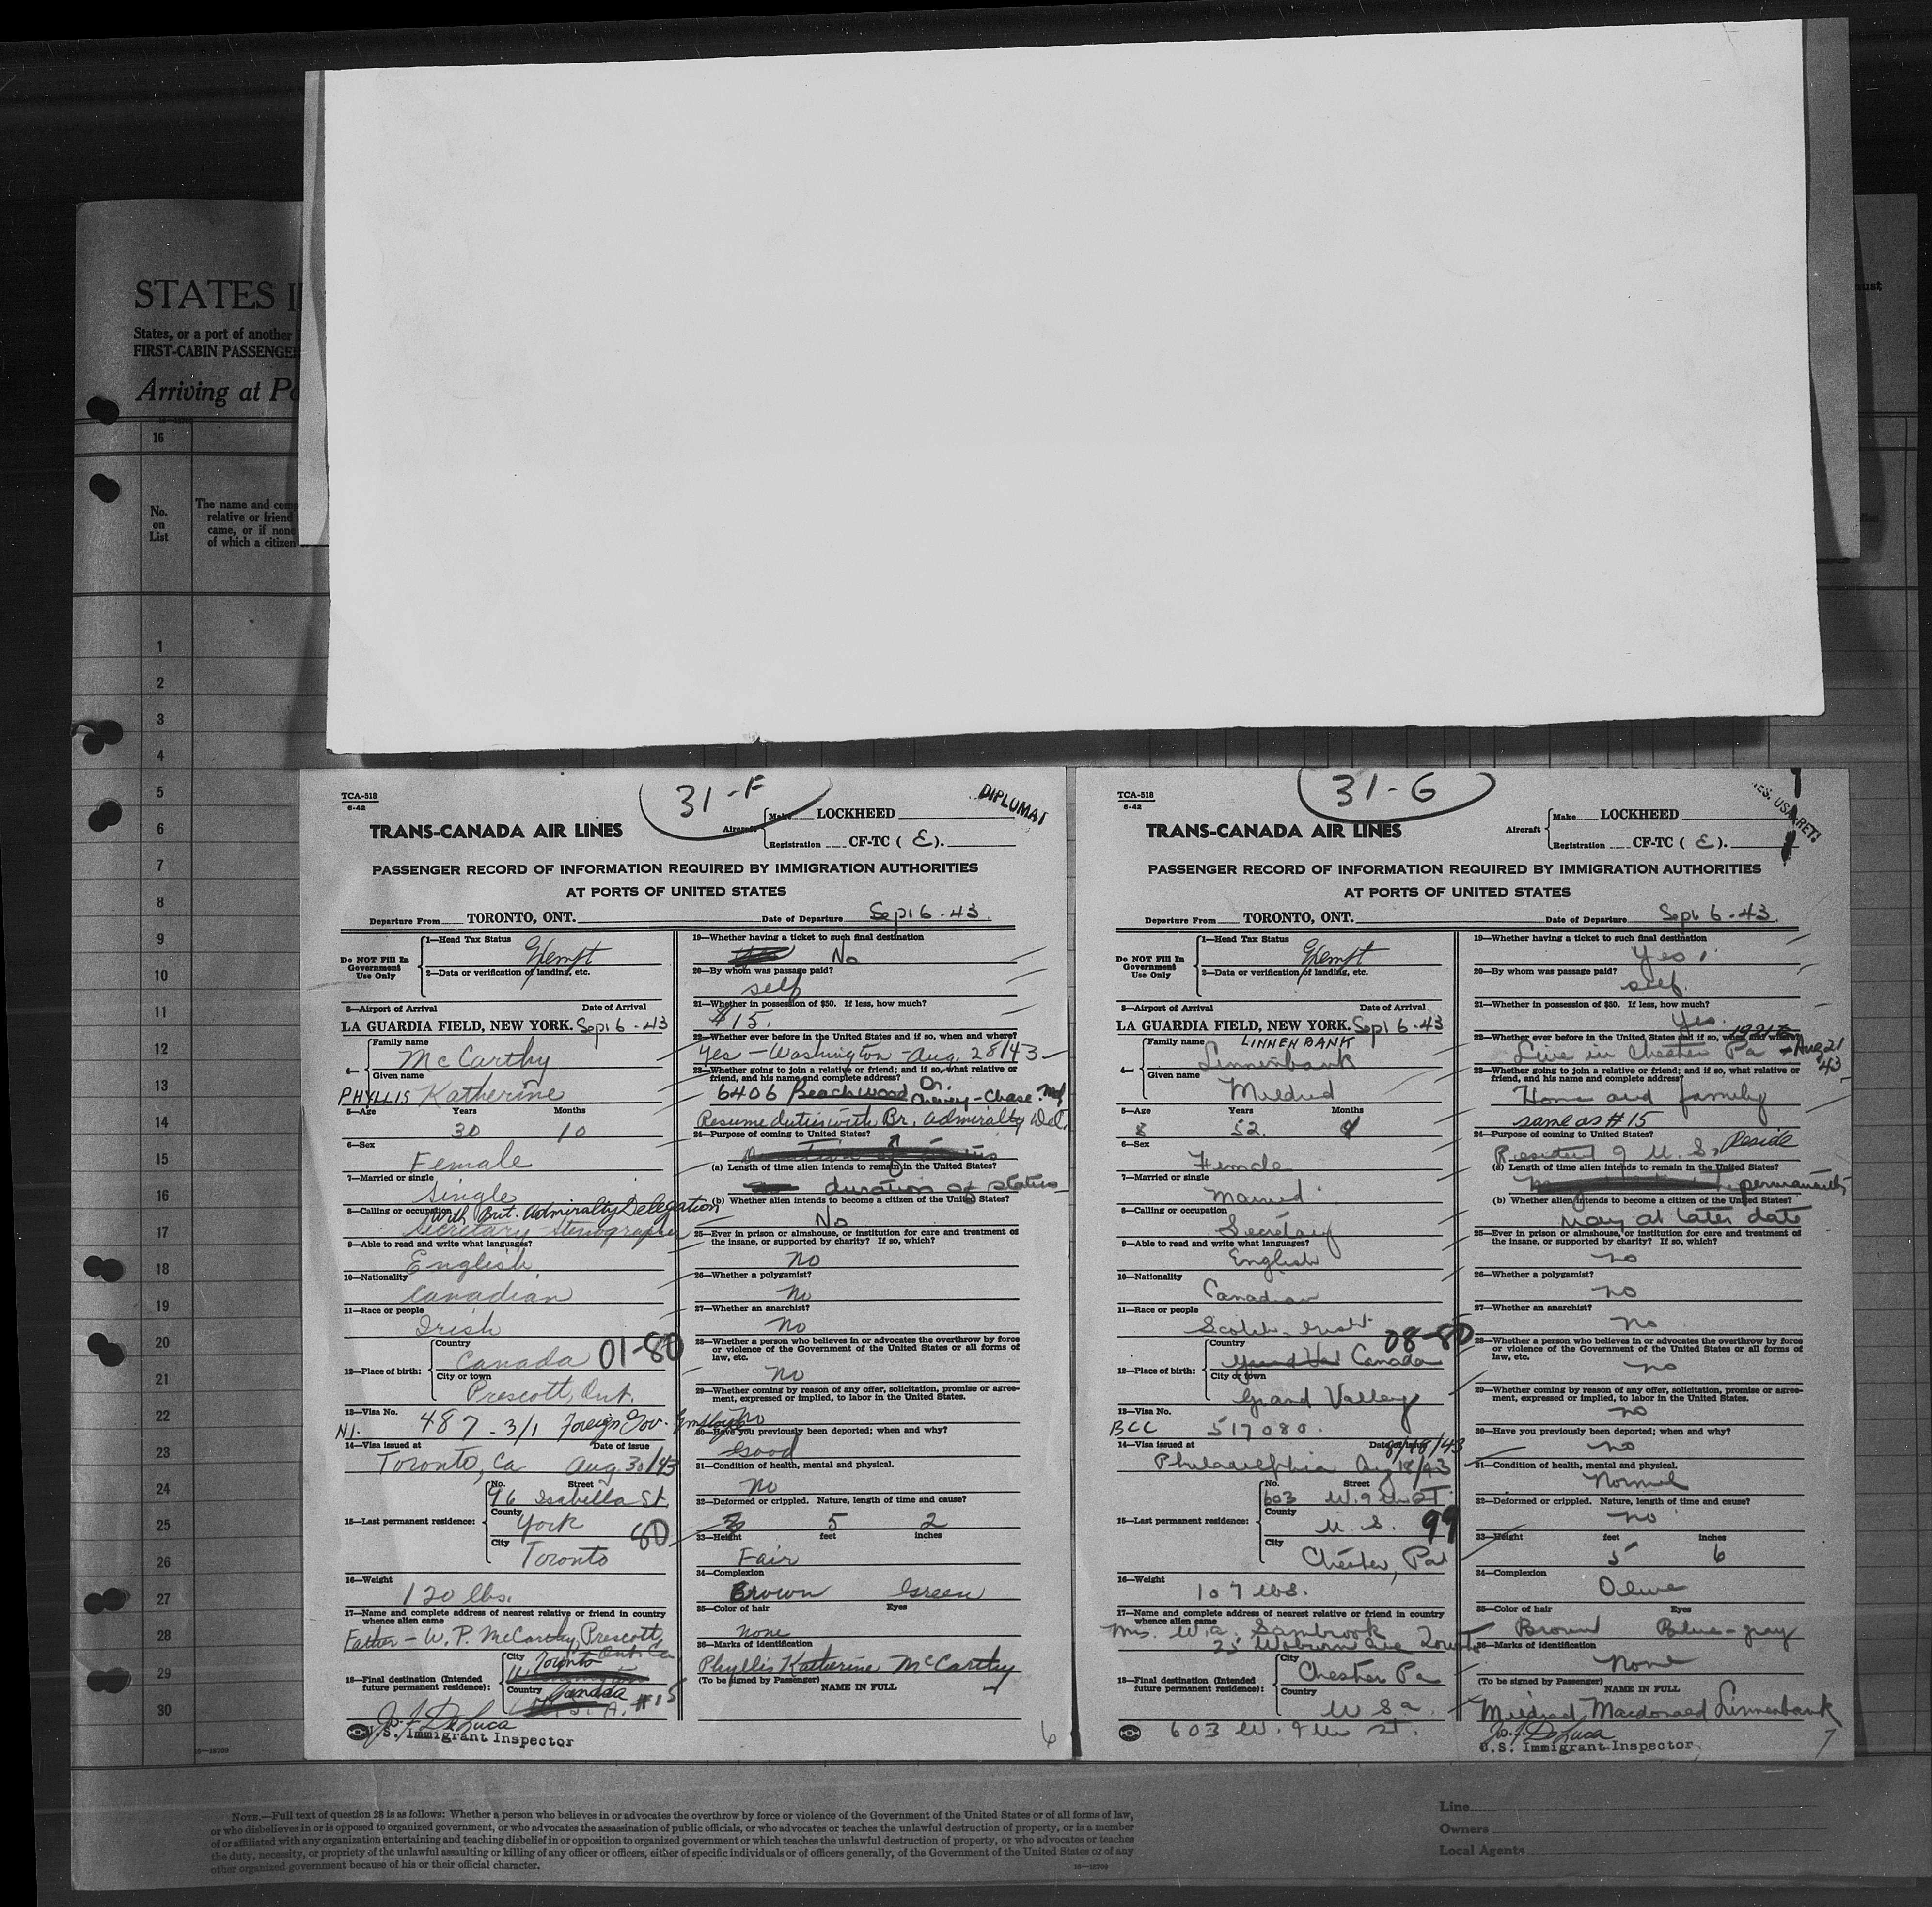 STATES I
States, or a port of another
FIRST-CABIN PASSENGE
Arriving at Po
16
No.
on
List
The name and comp
relative or friend
came, or if none
of which a citizen
1
2
3
4
5
6
7
8
9
10
11
12
13
14
15
16
17
18
19
20
21
22
23
24
25
26
27
28
29
30
31-F
TCA-518
6-42
DIPLOMAT
TRANS-CANADA AIR LINES
Aircraft Make LOCKHEED
Registration CF-TC ( E ).
PASSENGER RECORD OF INFORMATION REQUIRED BY IMMIGRATION AUTHORITIES
AT PORTS OF UNITED STATES
Departure From TORONTO, ONT. Date of Departure Sept 6-43.
Do NOT Fill In
Government
Use Only
1—Head Tax Status
Exempt
2—Data or verification of landing, etc.
3—Airport of Arrival Date of Arrival
LA GUARDIA FIELD, NEW YORK. Sept 6-43
4— Family name
McCarthy
Given name
PHYLLIS Katherine
5—Age Years Months
30 10
6—Sex
Female
7—Married or single
Single
8—Calling or occupation With Brit. Admiralty Delegation
Secretary Stenographer
9—Able to read and write what languages?
English
10—Nationality
Canadian
11—Race or people
Irish
12—Place of birth: Country
Canada 01-80
City or town
Prescott, Ont.
13—Visa No.
N.I. 487 - 3/1 Foreign Gov. Employee
14—Visa issued at Date of issue
Toronto, Ca Aug. 30/43
15—Last permanent residence: No. Street
96 Isabella St.
County
York 80
City
Toronto
16—Weight
120 lbs.
17—Name and complete address of nearest relative or friend in country
whence alien came
Father - W. P. McCarthy, Prescott,
Ont. Ca
18—Final destination (Intended
future permanent residence):
City Toronto
Country Canada
#15
J. F. DeLuca
U.S. Immigrant Inspector
19—Whether having a ticket to such final destination
No
20—By whom was passage paid?
self
21—Whether in possession of $50. If less, how much?
$15.
22—Whether ever before in the United States and if so, when and where?
Yes - Washington - Aug. 28/43
23—Whether going to join a relative or friend; and if so, what relative or
friend, and his name and complete address?
6406 Beachwood Dr. Chevey-Chase. Md
Resume duties with Br. Admiralty Del.
24—Purpose of coming to United States?
(a) Length of time alien intends to remain in the United States?
duration of status
(b) Whether alien intends to become a citizen of the United States?
No
25—Ever in prison or almshouse, or institution for care and treatment of
the insane, or supported by charity? If so, which?
No
26—Whether a polygamist?
No
27—Whether an anarchist?
No
28—Whether a person who believes in or advocates the overthrow by force
or violence of the Government of the United States or all forms of
law, etc.
No
29—Whether coming by reason of any offer, solicitation, promise or agree-
ment, expressed or implied, to labor in the United States.
No
30—Have you previously been deported; when and why?
Good
31—Condition of health, mental and physical.
No
32—Deformed or crippled. Nature, length of time and cause?
5 2
33—Height feet inches
Fair
34—Complexion
Brown Green
35—Color of hair Eyes
none
36—Marks of identification
Phyllis Katherine McCarthy
(To be signed by Passenger)
NAME IN FULL
6
31-G
TCA-518
6-42
TRANS-CANADA AIR LINES
Aircraft Make LOCKHEED
Registration CF-TC ( E ).
PASSENGER RECORD OF INFORMATION REQUIRED BY IMMIGRATION AUTHORITIES
AT PORTS OF UNITED STATES
Departure From TORONTO, ONT. Date of Departure Sept 6-43.
Do NOT Fill In
Government
Use Only
1—Head Tax Status
Exempt
2—Data or verification of landing, etc.
3—Airport of Arrival Date of Arrival
LA GUARDIA FIELD, NEW YORK. Sept 6-43
4— Family name LINNENBANK
Linnenbank
Given name
Mildred
5—Age Years Months
52.
6—Sex
Female
7—Married or single
Married
8—Calling or occupation
Secretary
9—Able to read and write what languages?
English
10—Nationality
Canadian
11—Race or people
Scotch-Irish
08-80
12—Place of birth: Country
Canada
City or town
Grand Valley
13—Visa No.
BCC 517080.
14—Visa issued at Date of issue 8/18/43
Philadelphia Aug 18/43
15—Last permanent residence: No. Street
603 W. 9th ST.
County
U.S. 99
City
Chester, Pa
16—Weight
107 lbs.
17—Name and complete address of nearest relative or friend in country
whence alien came
Mrs. W.A. Sambrook
25 Woburn Ave Toronto
18—Final destination (Intended
future permanent residence):
City
Chester Pa
Country
U S a.
603 W. 9th St.
19—Whether having a ticket to such final destination
Yes.
20—By whom was passage paid?
self.
21—Whether in possession of $50. If less, how much?
Yes.
22—Whether ever before in the United States and if so, when and where?
1921 to
Live in Chester Pa - Aug 21
43
23—Whether going to join a relative or friend; and if so, what relative or
friend, and his name and complete address?
Home and family
same as #15
24—Purpose of coming to United States? Reside
Resident of U.S.
(a) Length of time alien intends to remain in the United States?
permanently
(b) Whether alien intends to become a citizen of the United States?
may at later date
25—Ever in prison or almshouse, or institution for care and treatment of
the insane, or supported by charity? If so, which?
no
26—Whether a polygamist?
no
27—Whether an anarchist?
no
28—Whether a person who believes in or advocates the overthrow by force
or violence of the Government of the United States or all forms of
law, etc.
no
29—Whether coming by reason of any offer, solicitation, promise or agree-
ment, expressed or implied, to labor in the United States.
no
30—Have you previously been deported; when and why?
no
31—Condition of health, mental and physical.
Normal
32—Deformed or crippled. Nature, length of time and cause?
no
33—Height feet inches
5 6
34—Complexion
Olive
35—Color of hair Eyes
Brown Blue-gray
36—Marks of identification
None
(To be signed by Passenger)
NAME IN FULL
Mildred Macdonald Linnenbank
J. F. DeLuca
U.S. Immigrant Inspector
7
NOTE.—Full text of question 28 is as follows: Whether a person who believes in or advocates the overthrow by force or violence of the Government of the United States or of all forms of law,
or who disbelieves in or is opposed to organized government, or who advocates the assassination of public officials, or who advocates or teaches the unlawful destruction of property, or is a member
of or affiliated with any organization entertaining and teaching disbelief in or opposition to organized government or which teaches the unlawful destruction of property, or who advocates or teaches
the duty, necessity, or propriety of the unlawful assaulting or killing of any officer or officers, either of specific individuals or of officers generally, of the Government of the United States or of any
other organized government because of his or their official character.
Line
Owners
Local Agents